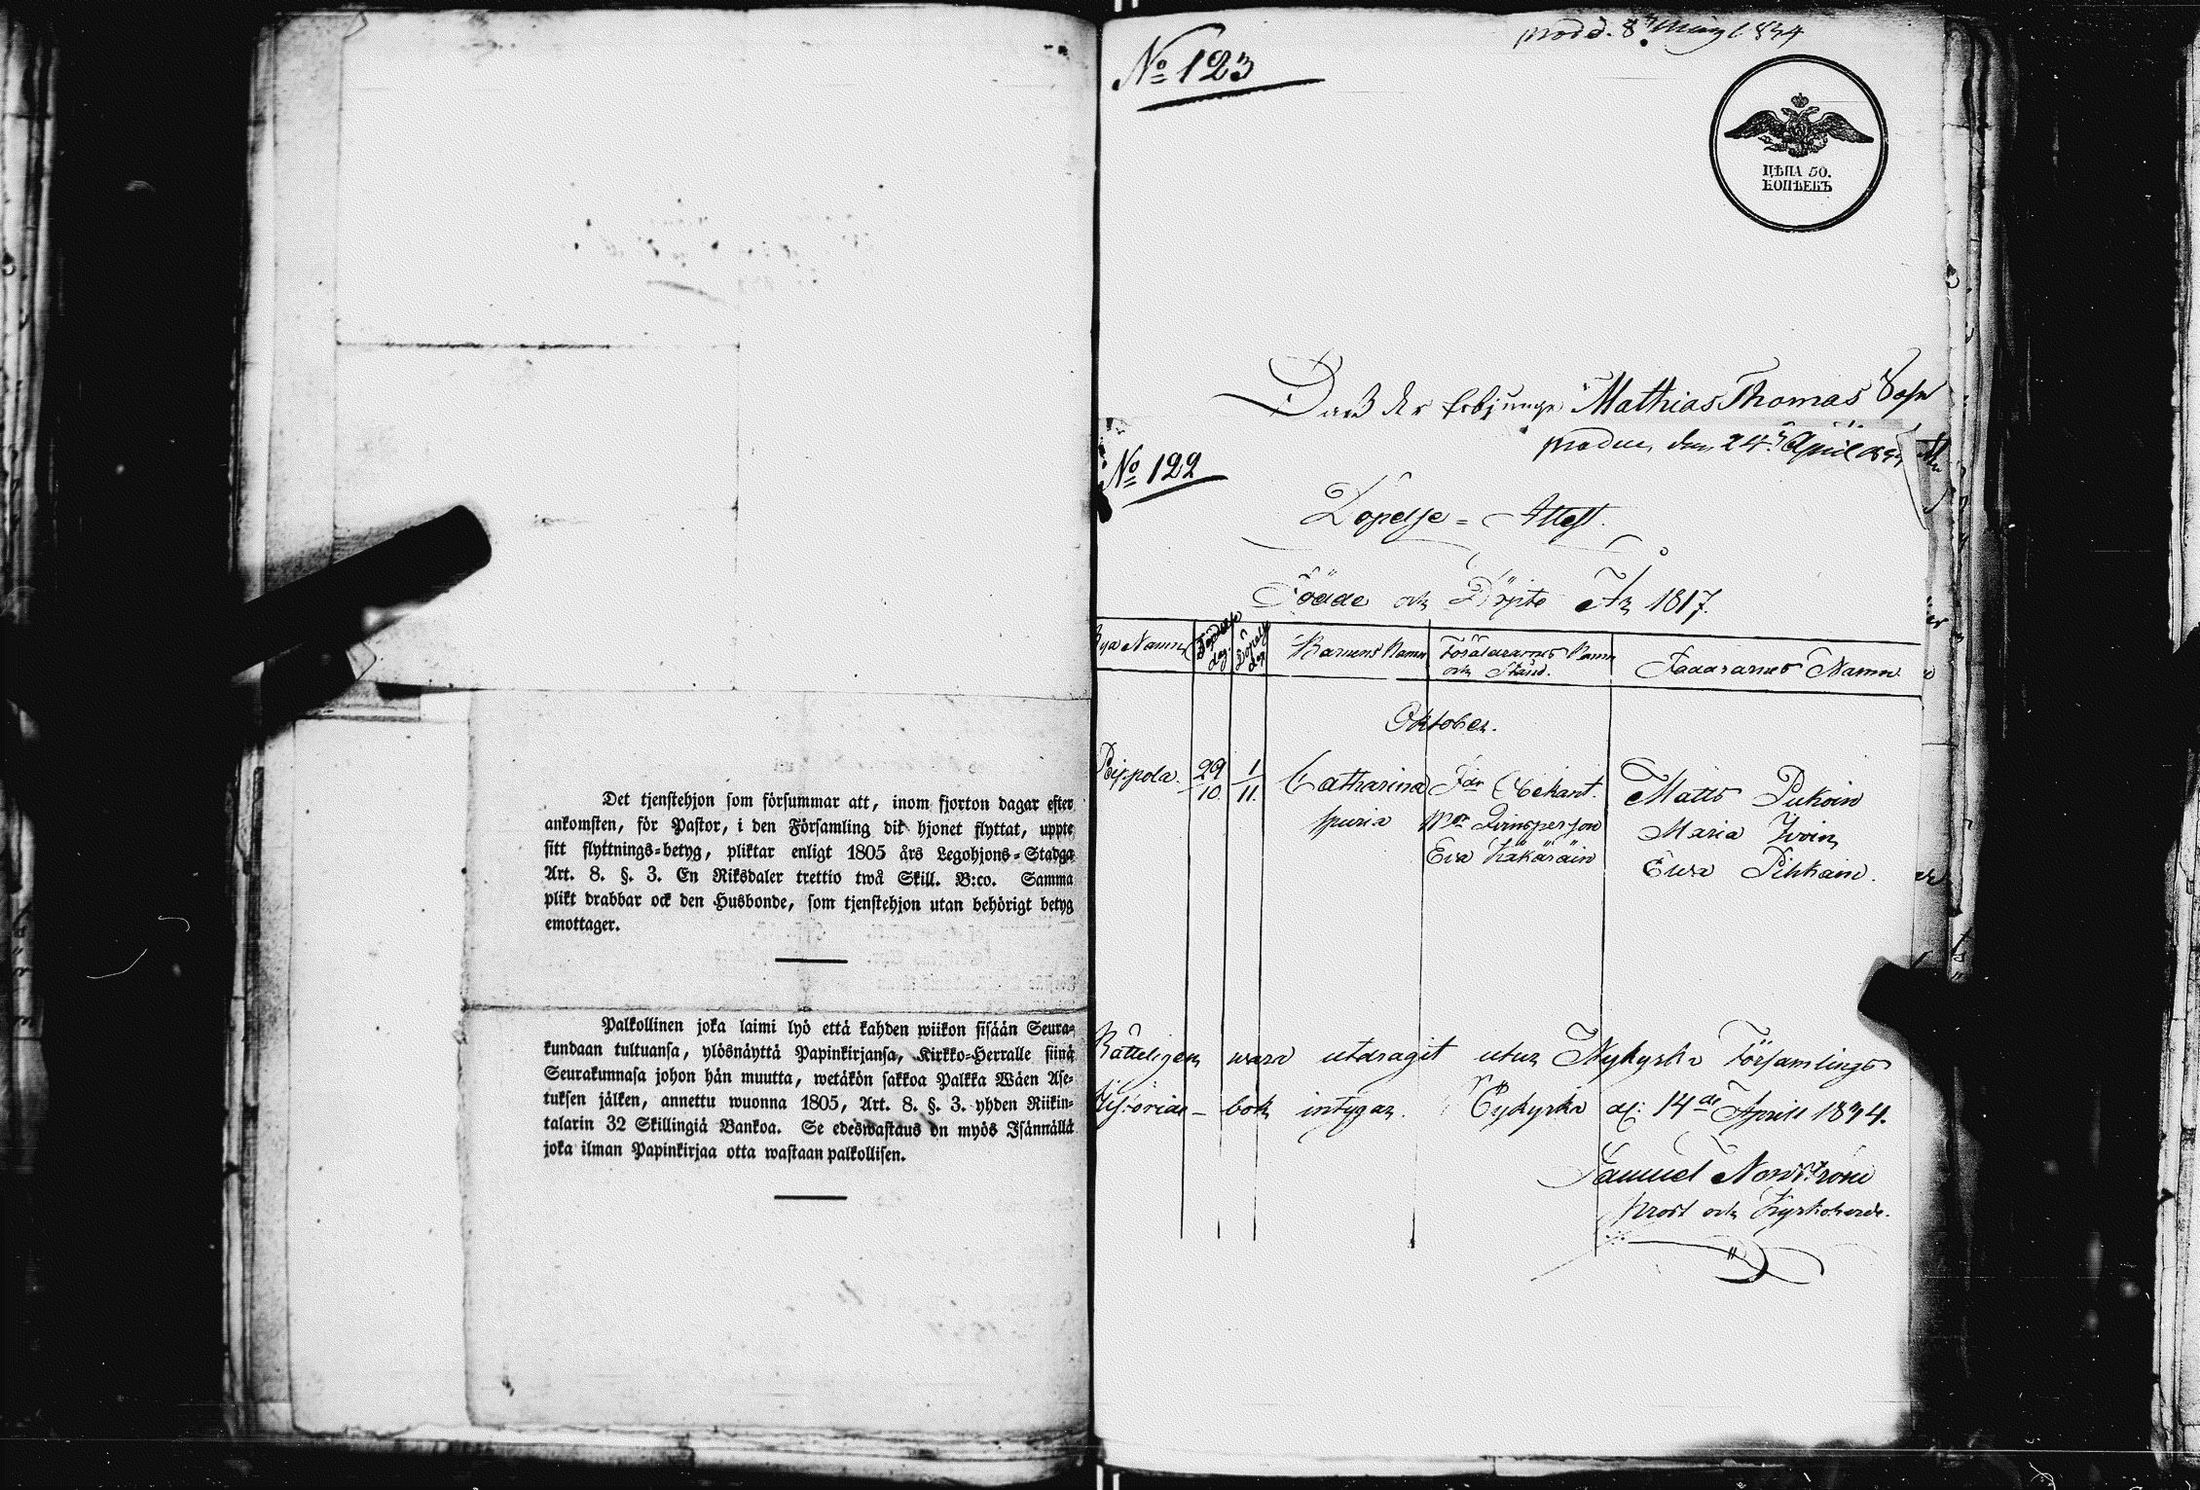 Det tjenstehjon som försummar att, inom fjorton dagar efter
ankomsten, för Pastor, i den Församling dit hjonet flyttat, uppte
sitt flyttnings-betyg, pliktar enligt 1805 års Legohjons-Stadga
Art. 8. §. 3. En Riksdaler trettio twå Skill. B:co. Samma
plikt drabbar ock den Husbonde, som tjenstehjon utan behörigt betyg
emottager.
Palkollinen joka laimi lyö että kahden wiikon sisään Seura-
kundaan tultuansa, ylösnäyttä Papinkirjansa, Kirkko-Herralle siinä
Seurakunnasa johon hän muutta, wetäkön sakkoa Palkka Wäen Ase-
tuksen jälken, annettu wuonna 1805, Art. 8. §. 3. yhden Riikin-
talarin 32 Skillingiä Bankoa. Se edeswastaus on myös Isännällä
joka ilman Papinkirjaa otta wastaan palkollisen.
No 123
prod d. 8 Maij 1834
ЦѢНА 50.
КОПѢЕКЪ
Daß der Erbjunge Mathias Thomas Sohn
No 122
produc. den 24 April 1834
Döpelse=Attest.
Födde och Döpte År 1817.
Bya Namn
Födelse dag.
Döpelse dag
Barnens Namn
Föräldrarnes Namn och Stånd.
Faddrarnes Namn
Oktober.
Peippola. 29/10 1/11. Catharina Far Okänt. Matts Pukoin
spuria Mor Qvinsperson Maria Ivoin
Eva Käkäräin Ewa Pihkain.
Rätteligen vara utdragit utur Nykyrka Församlings
Historiae-bok intygar. Nykyrka d: 14de April 1834.
Samuel Nordström
Prost och Kyrkoherde.